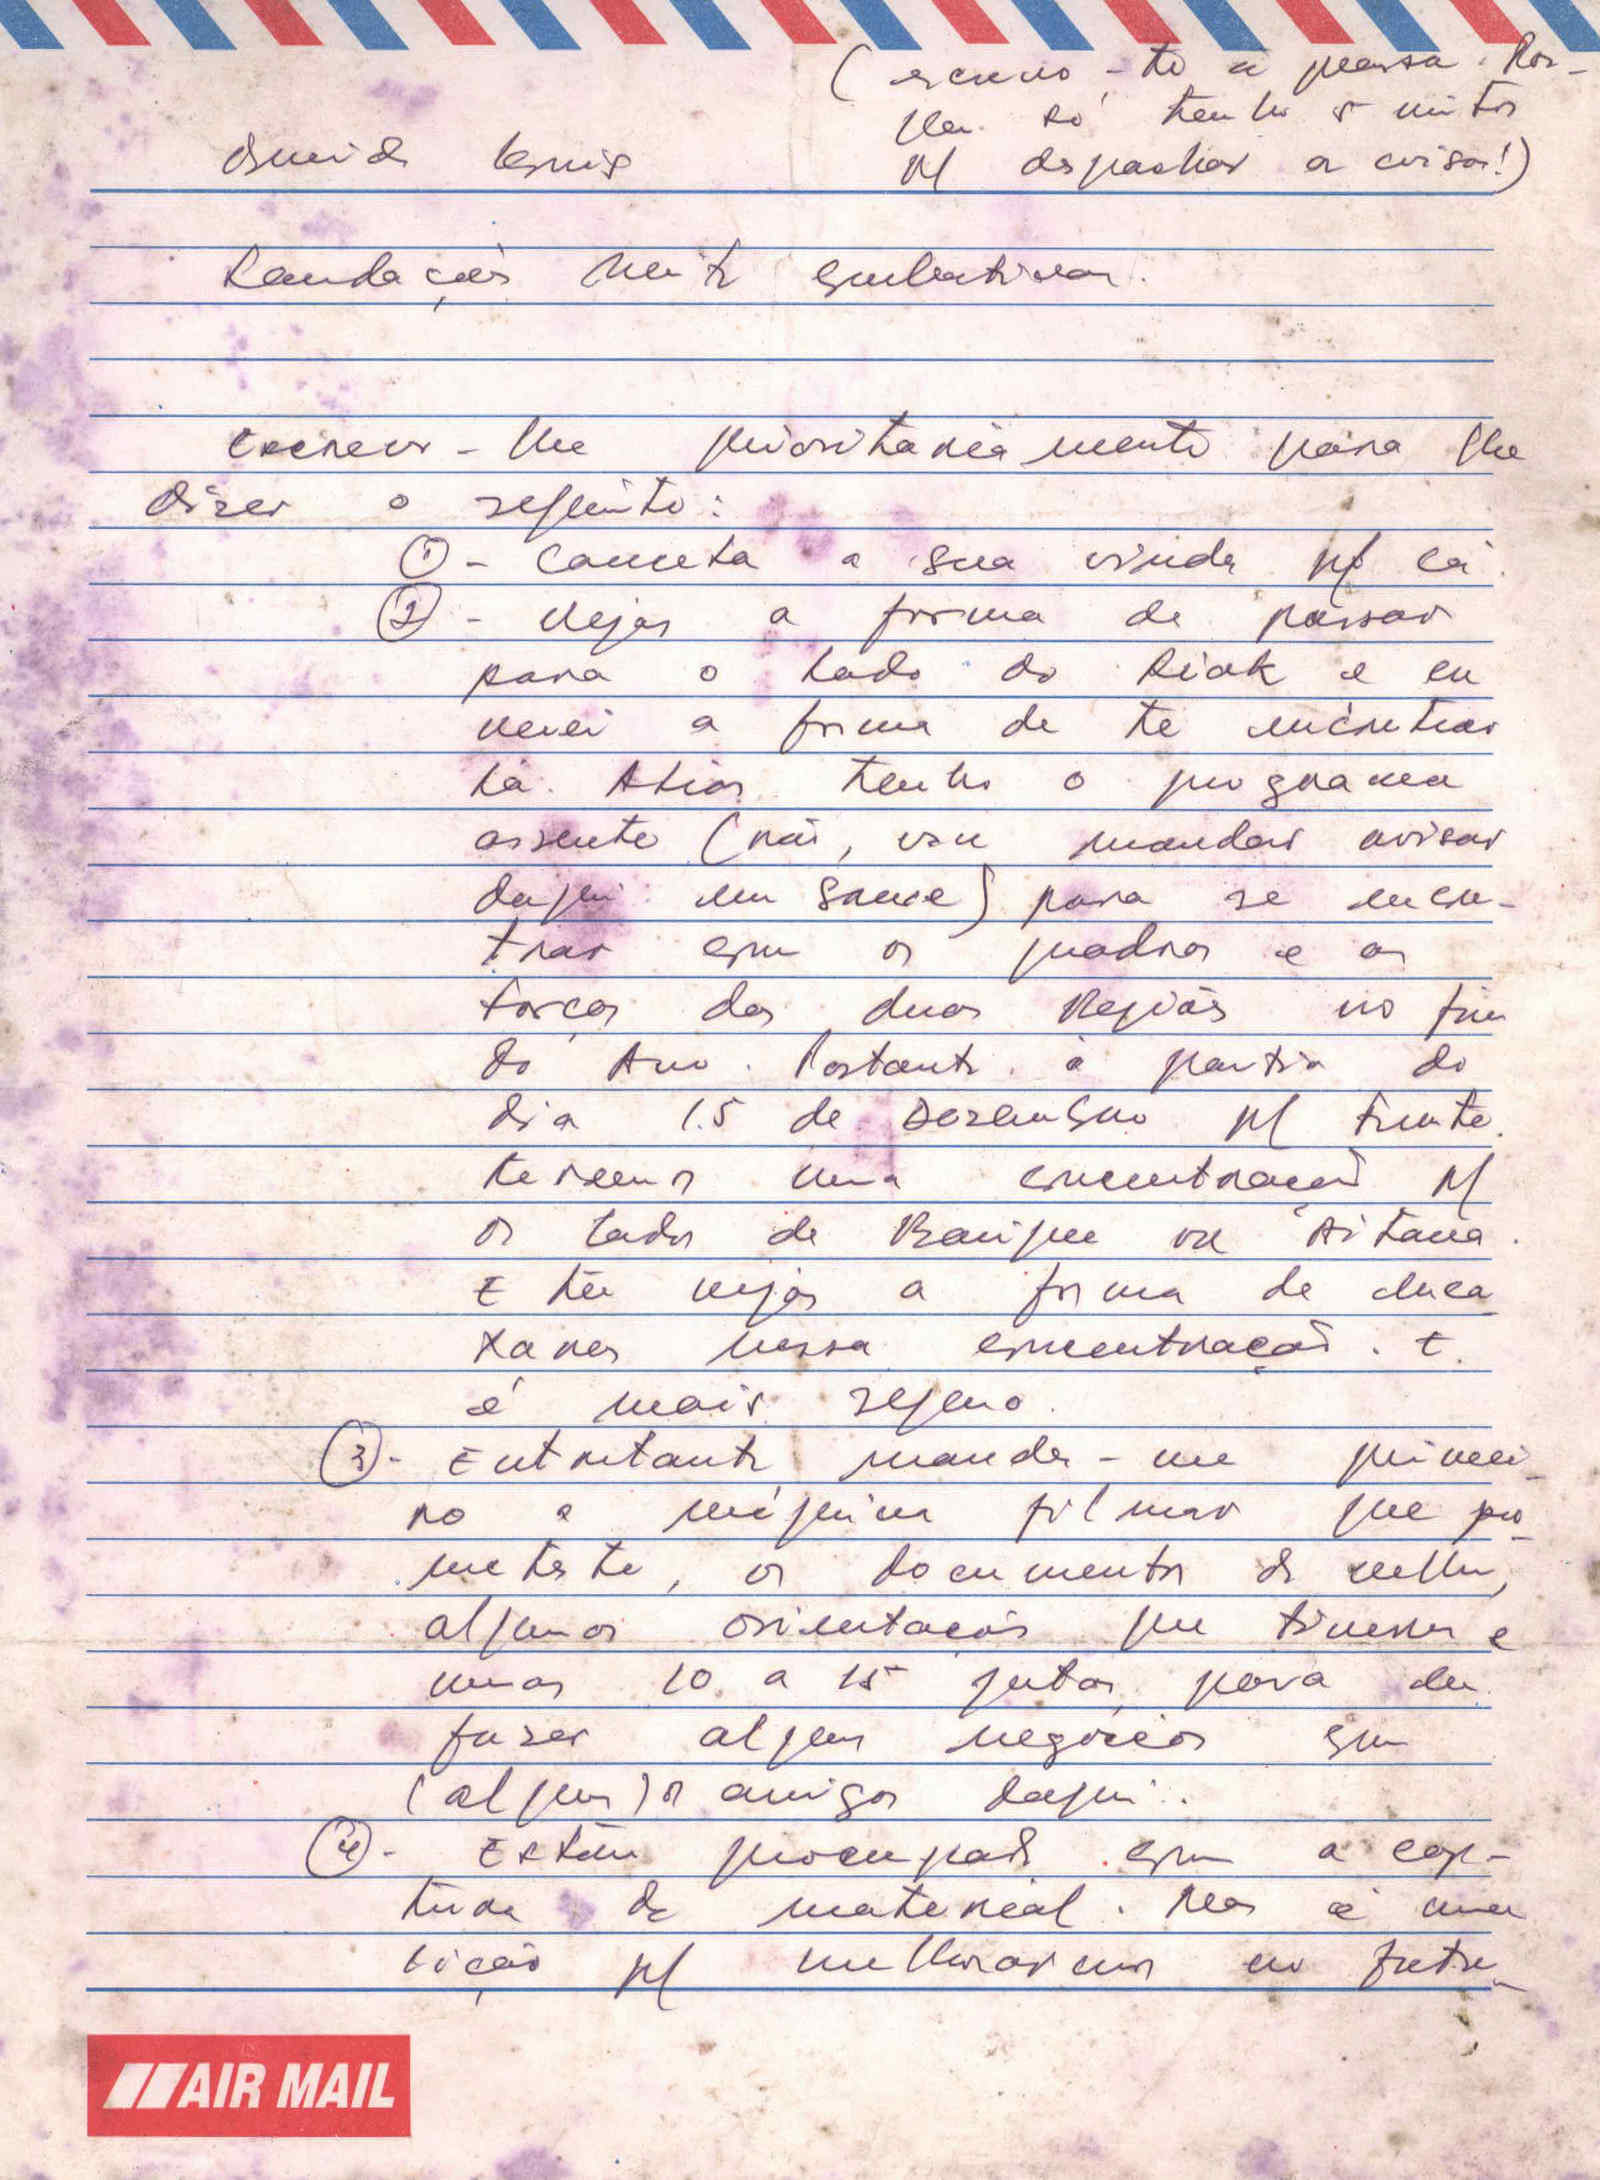 (escrevo-te à pressa. Por-
que só tenho 5 mitos
p/ despachar a coisa!)
Saudações muito combativas.
Escrevo-lhe prioritariamente para lhe
dizer o seguinte:
① - Cancela a sua vinda p/ cá.
② - Vejas a forma de passar
para o lado do Siak e eu
verei a forma de te encontrar
lá. Aliás tenho o programa
assente (não, vou mandar avisar
daqui em breve) para se encon-
trar com os quadros e as
forças das duas Regiões no fim
do Ano. Portanto à partir do
dia 15 de Dezembro p/ frente
teremos uma concentração p/
os lados de Bauique ou Aitana.
E tu vejas a forma de enca
xares nessa concentração. E
é mais seguro.
③ - Entretanto manda-me primei-
ro a máquina filmar que pro-
meteste, os documentos do
algumas orientações que tiveres e
umas 10 a 15 jutas para eu
fazer algum negócios com
(algum)os amigos daqui.
④ - Estou preocupado com a cap-
tura de material. Mas é uma
lição p/ melhorarmos no futu-
AIR MAIL